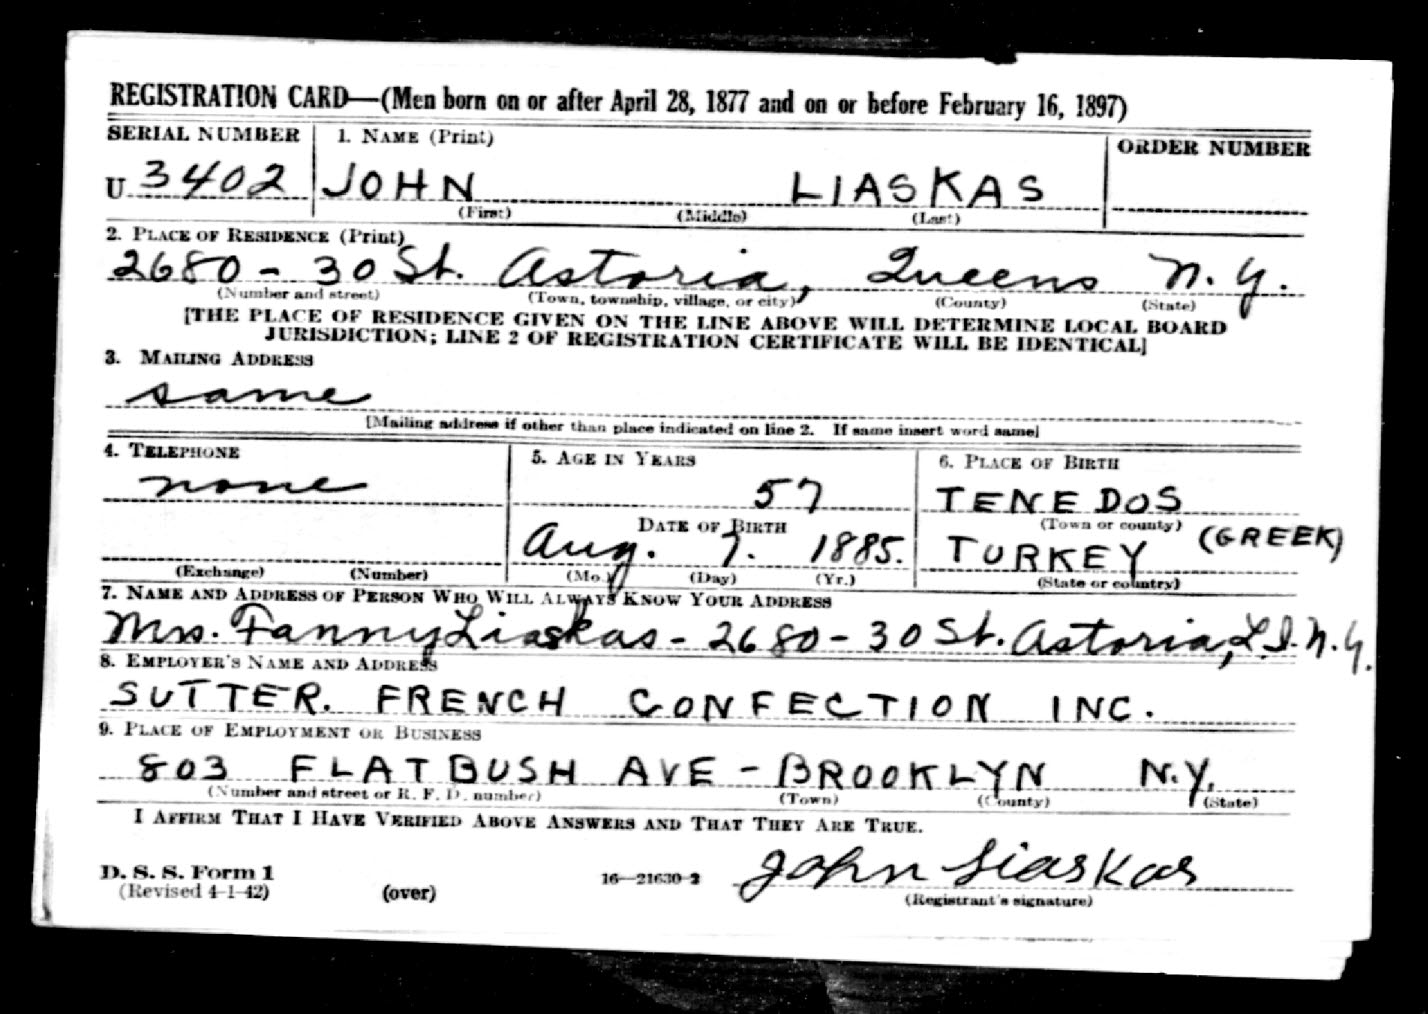 REGISTRATION CARD—(Men born on or after April 28, 1877 and on or before February 16, 1897)
SERIAL NUMBER 1. NAME (Print) ORDER NUMBER
U 3402 JOHN LIASKAS
(First) (Middle) (Last)
2. PLACE OF RESIDENCE (Print)
2680 - 30 St. Astoria, Queens N.Y.
(Number and street) (Town, township, village, or city) (County) (State)
[THE PLACE OF RESIDENCE GIVEN ON THE LINE ABOVE WILL DETERMINE LOCAL BOARD
JURISDICTION; LINE 2 OF REGISTRATION CERTIFICATE WILL BE IDENTICAL]
3. MAILING ADDRESS
same
[Mailing address if other than place indicated on line 2. If same insert word same]
4. TELEPHONE 5. AGE IN YEARS 6. PLACE OF BIRTH
none 57 TENEDOS
DATE OF BIRTH (Town or county)
Aug. 7. 1885. TURKEY (GREEK)
(Exchange) (Number) (Mo.) (Day) (Yr.) (State or country)
7. NAME AND ADDRESS OF PERSON WHO WILL ALWAYS KNOW YOUR ADDRESS
Mrs. Fanny Liaskas - 2680 - 30 St. Astoria, L.I. N.Y.
8. EMPLOYER'S NAME AND ADDRESS
SUTTER. FRENCH CONFECTION INC.
9. PLACE OF EMPLOYMENT OR BUSINESS
803 FLATBUSH AVE - BROOKLYN N.Y.
(Number and street or R. F. D. number) (Town) (County) (State)
I AFFIRM THAT I HAVE VERIFIED ABOVE ANSWERS AND THAT THEY ARE TRUE.
John Liaskas
D. S. S. Form 1
(Revised 4-1-42) (over) 16—21630-2 (Registrant's signature)